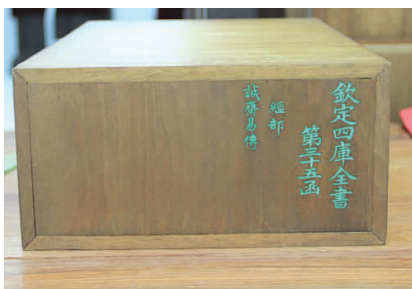 欽定四庫全書
第三十五函
經部
誠齋易傳